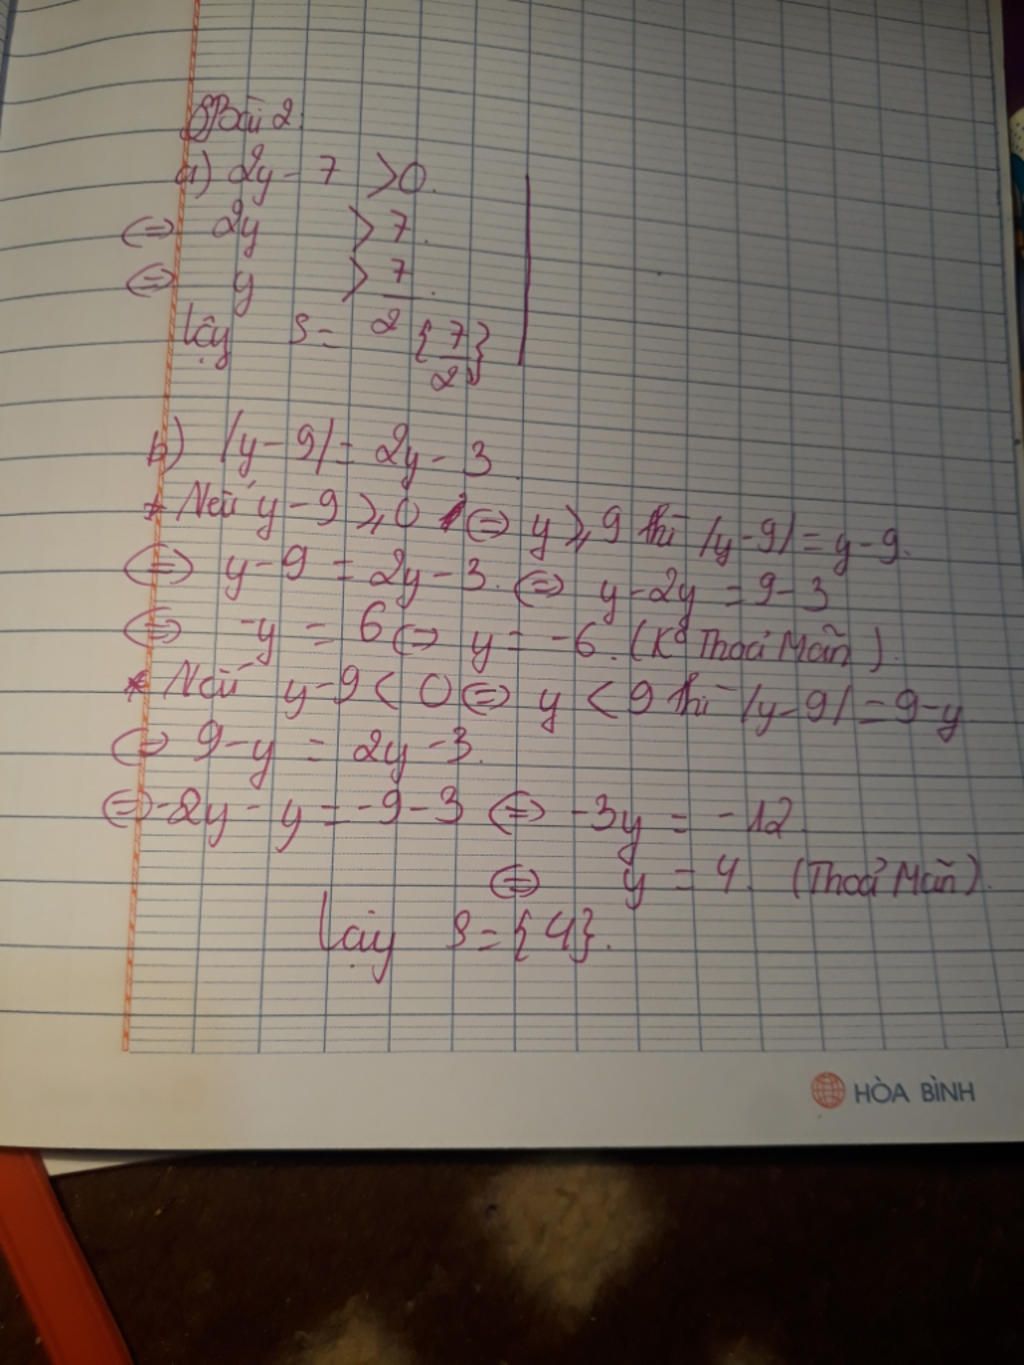 Bài 2
a) 2y - 7 > 0.
⇔ 2y > 7.
⇔ y > 7/2.
Vậy S = {7/2}
b) |y - 9| = 2y - 3
* Nếu y - 9 ≥ 0 ⇔ y ≥ 9 thì |y - 9| = y - 9.
⇔ y - 9 = 2y - 3. ⇔ y - 2y = 9 - 3
⇔ -y = 6 ⇔ y = -6. (Ko Thoả Mãn).
* Nếu y - 9 < 0 ⇔ y < 9 thì |y - 9| = 9 - y
⇔ 9 - y = 2y - 3.
⇔ -2y - y = -9 - 3 ⇔ -3y = -12.
⇔ y = 4. (Thoả Mãn).
Vậy S = {4}.
HÒA BÌNH